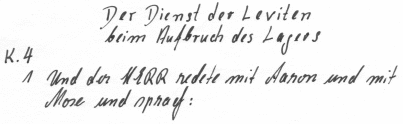 Der Dienst der Leviten
beim Aufbruch des Lagers
K. 4
1 Und der HERR redete mit Aaron und mit
Mose und sprach: